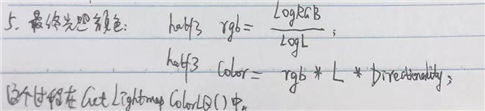 5. 最终光照颜色: half3 rgb = LogRGB / LogL ;
half3 Color = rgb * L * Directionality;
这个过程在 GetLightmapColorLQ()中。